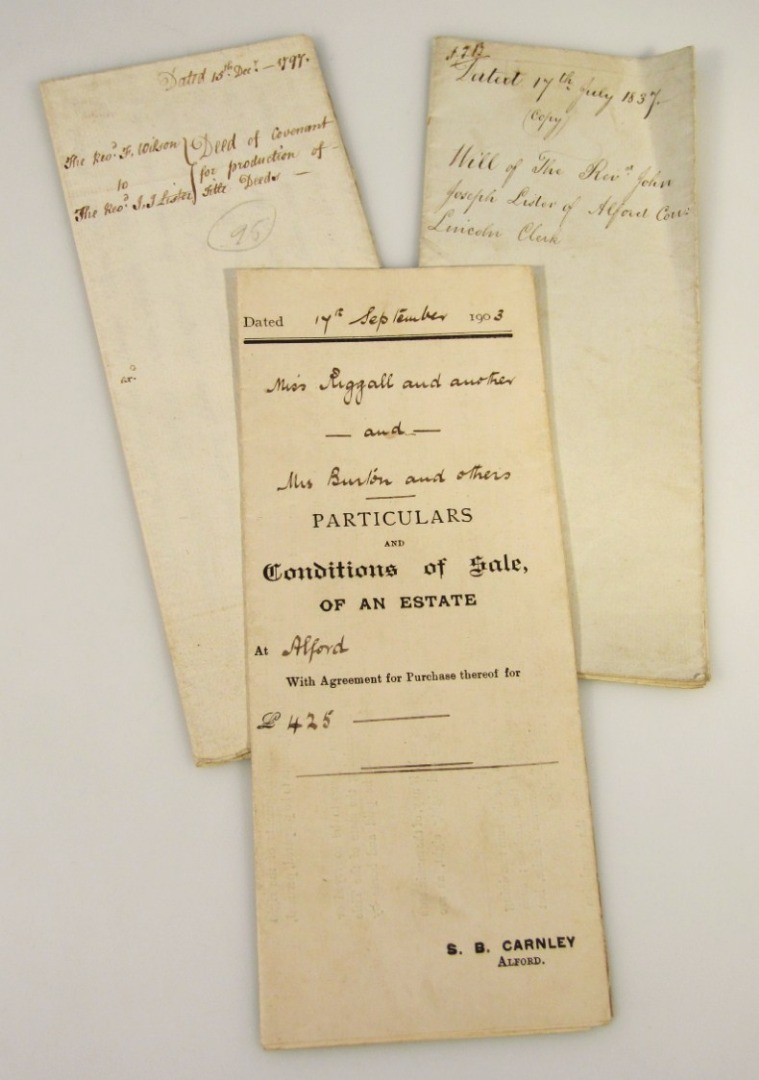 Dated 15th Decr. — 1797.
The Revd. F. Wilson
to
The Revd. J. J Lister
Deed of Covenant
for production of —
Title Deeds —
95
Dated 17th July 1837.
(Copy)
Will of The Revd. John
Joseph Lister of Alford Com:
Lincoln Clerk
Dated 17th September 1903
Miss Riggall and another
— and —
Mrs Burton and others
PARTICULARS
AND
Conditions of Sale,
OF AN ESTATE
At Alford
With Agreement for Purchase thereof for
£ 425 —
S. B. CARNLEY
ALFORD.